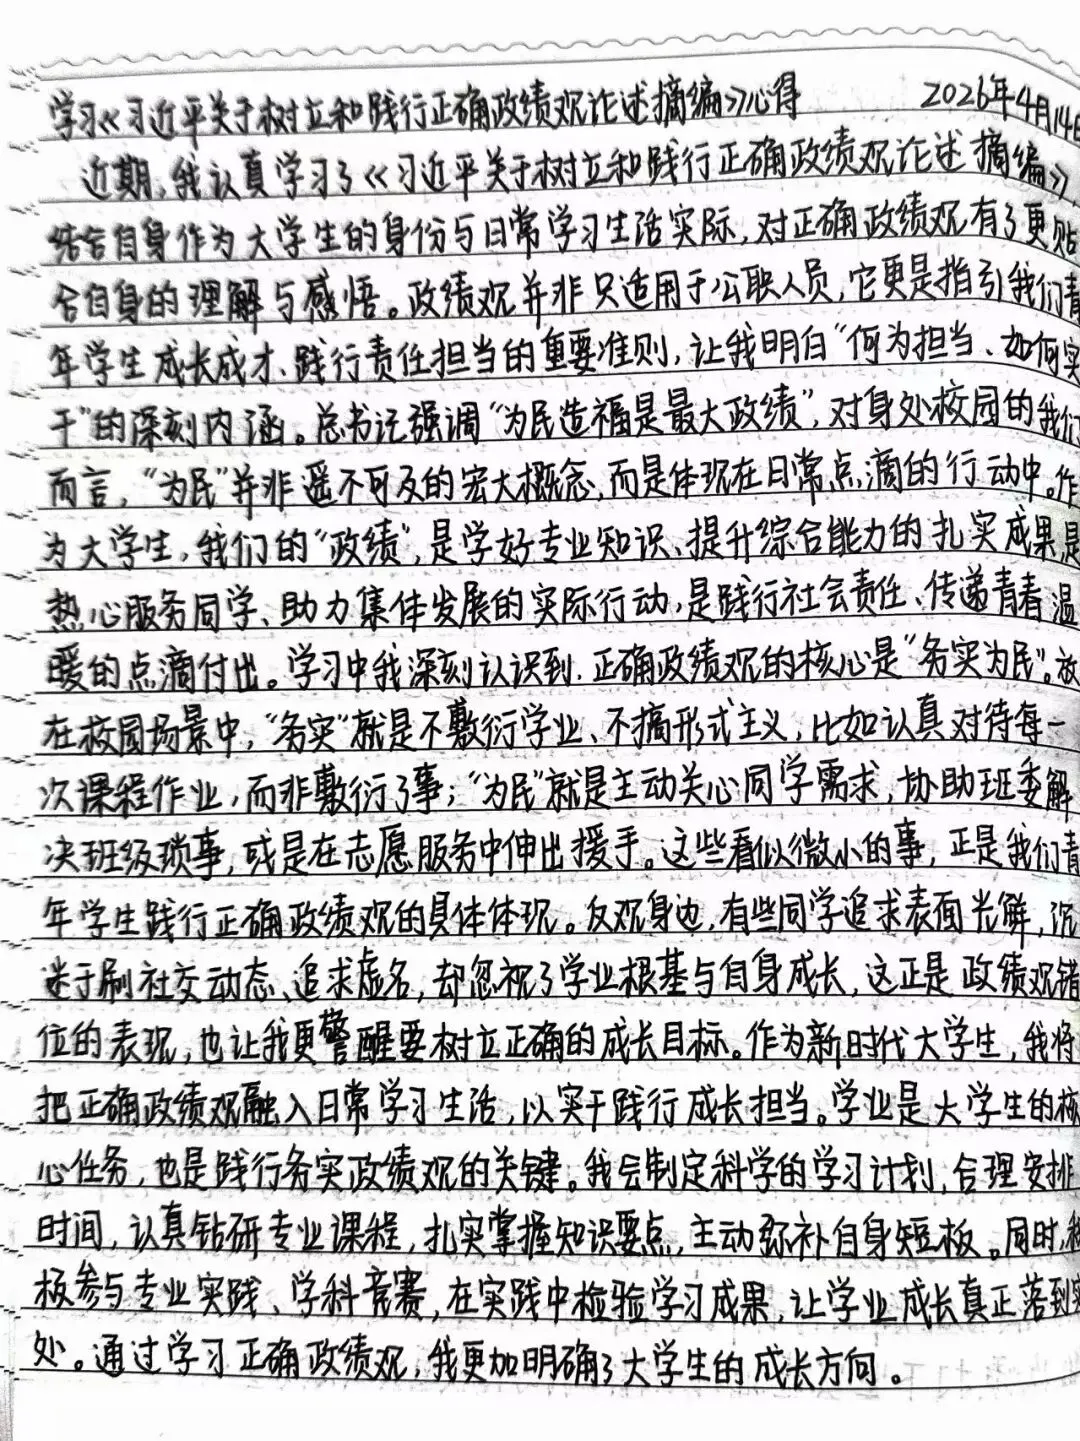 学习《习近平关于树立和践行正确政绩观论述摘编》心得 2026年4月14日
近期,我认真学习了《习近平关于树立和践行正确政绩观论述摘编》,
结合自身作为大学生的身份与日常学习生活实际,对正确政绩观有了更贴
合自身的理解与感悟。政绩观并非只适用于公职人员,它更是指引我们青
年学生成长成才、践行责任担当的重要准则,让我明白“何为担当、如何实
干”的深刻内涵。总书记强调“为民造福是最大政绩”,对身处校园的我们
而言,“为民”并非遥不可及的宏大概念,而是体现在日常点滴的行动中。作
为大学生,我们的“政绩”,是学好专业知识、提升综合能力的扎实成果是
热心服务同学、助力集体发展的实际行动,是践行社会责任、传递青春温
暖的点滴付出。学习中我深刻认识到,正确政绩观的核心是“务实为民”。放
在校园场景中,“务实”就是不敷衍学业、不搞形式主义,比如认真对待每一
次课程作业,而非敷衍了事;“为民”就是主动关心同学需求,协助班委解
决班级琐事,或是在志愿服务中伸出援手。这些看似微小的事,正是我们青
年学生践行正确政绩观的具体体现。反观身边,有些同学追求表面光鲜,沉
迷于刷社交动态、追求虚名,却忽视了学业根基与自身成长,这正是政绩观错
位的表现,也让我更警醒要树立正确的成长目标。作为新时代大学生,我将
把正确政绩观融入日常学习生活,以实干践行成长担当。学业是大学生的核
心任务,也是践行务实政绩观的关键。我会制定科学的学习计划,合理安排
时间,认真钻研专业课程,扎实掌握知识要点,主动弥补自身短板。同时,积
极参与专业实践、学科竞赛,在实践中检验学习成果,让学业成长真正落到实
处。通过学习正确政绩观,我更加明确了大学生的成长方向。